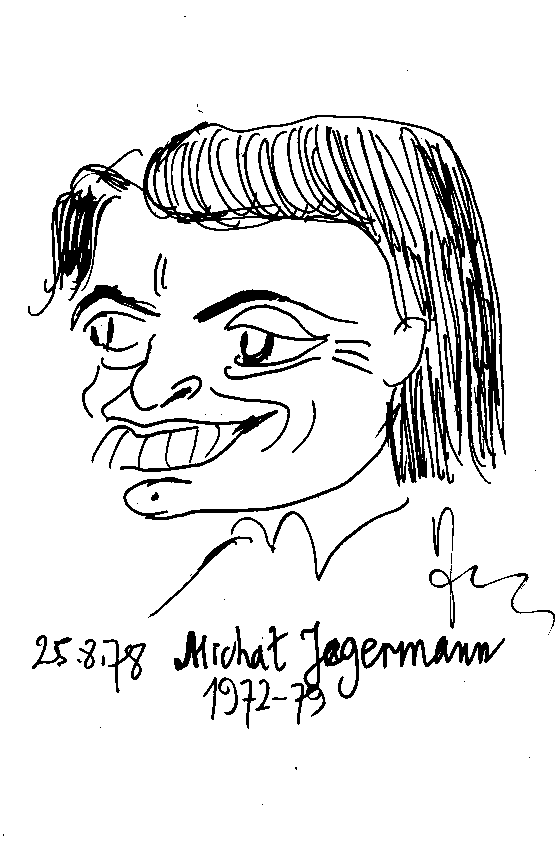 25.8.78 Michał Jagermann
1972-79